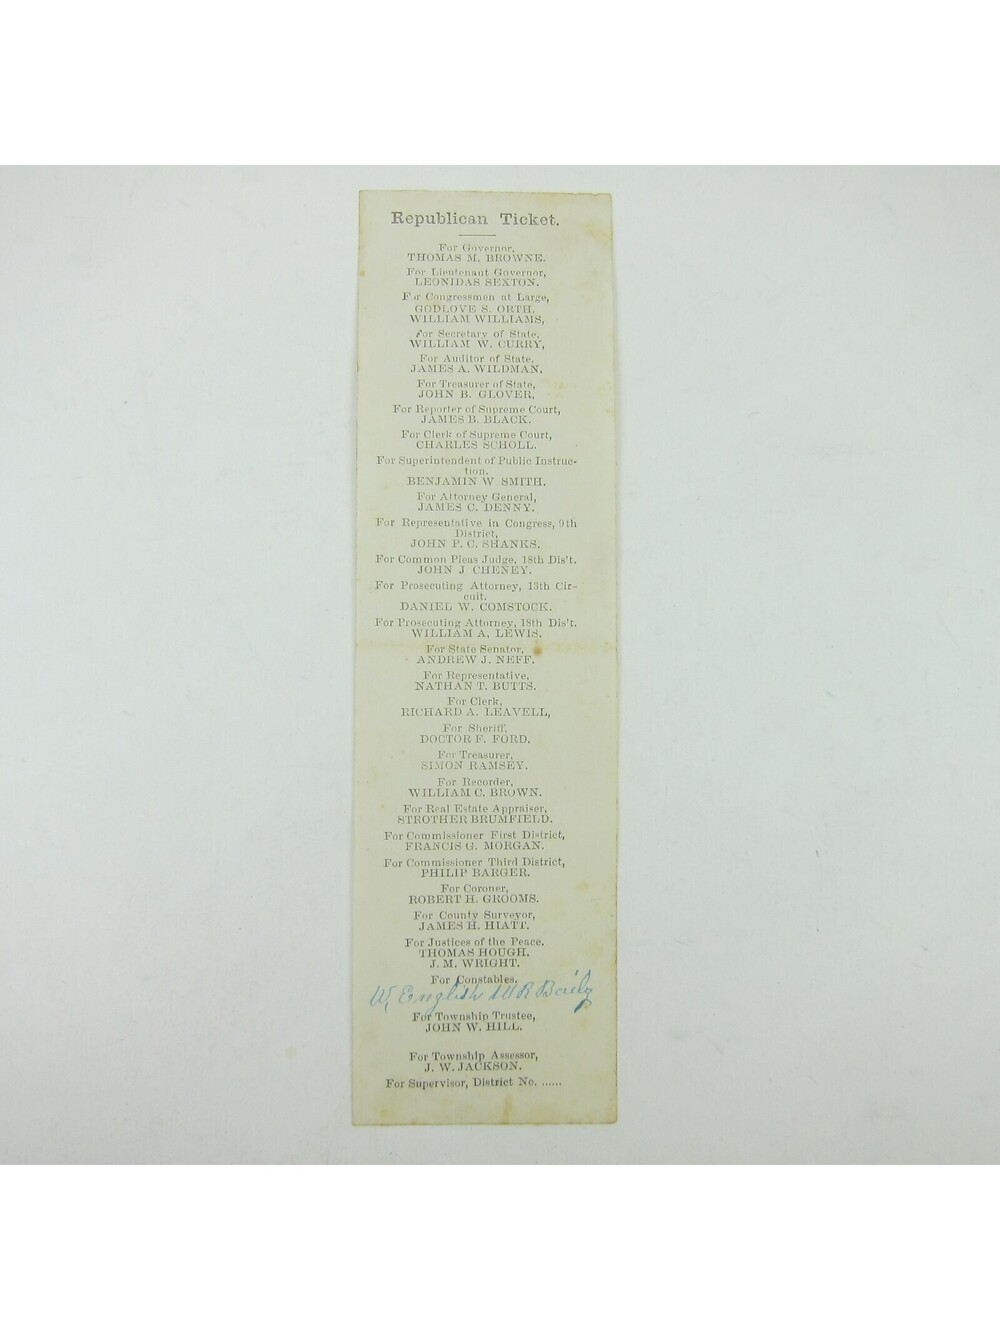 Republican Ticket.
For Governor,
THOMAS M. BROWNE.
For Lieutenant Governor,
LEONIDAS SEXTON.
For Congressmen at Large,
GODLOVE S. ORTH,
WILLIAM WILLIAMS,
For Secretary of State,
WILLIAM W. CURRY,
For Auditor of State,
JAMES A. WILDMAN,
For Treasurer of State,
JOHN B. GLOVER,
For Reporter of Supreme Court,
JAMES B. BLACK.
For Clerk of Supreme Court,
CHARLES SCHOLL.
For Superintendent of Public Instruc-
tion.
BENJAMIN W SMITH.
For Attorney General,
JAMES C. DENNY.
For Representative in Congress, 9th
District,
JOHN P. C. SHANKS.
For Common Pleas Judge, 18th Dis't.
JOHN J CHENEY.
For Prosecuting Attorney, 13th Cir-
cuit.
DANIEL W. COMSTOCK.
For Prosecuting Attorney, 18th Dis't.
WILLIAM A, LEWIS.
For State Senator,
ANDREW J. NEFF.
For Representative,
NATHAN T. BUTTS.
For Clerk,
RICHARD A. LEAVELL,
For Sheriff,
DOCTOR F. FORD.
For Treasurer,
SIMON RAMSEY.
For Recorder,
WILLIAM C. BROWN.
For Real Estate Appraiser,
STROTHER BRUMFIELD.
For Commissioner First District,
FRANCIS G. MORGAN.
For Commissioner Third District,
PHILIP BARGER.
For Coroner,
ROBERT H. GROOMS.
For County Surveyor,
JAMES H. HIATT.
For Justices of the Peace.
THOMAS HOUGH.
J. M. WRIGHT.
For Constables.
W, English W R Baily
For Township Trustee,
JOHN W. HILL.
For Township Assessor,
J. W. JACKSON.
For Supervisor, District No. ......